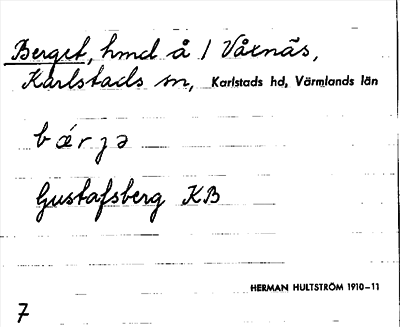 Berget, hmd å / Våxnäs,
Karlstads sn, Karlstads hd, Värmlands län
bǽrjə
Gustafsberg KB
HERMAN HULTSTRÖM 1910-11
7